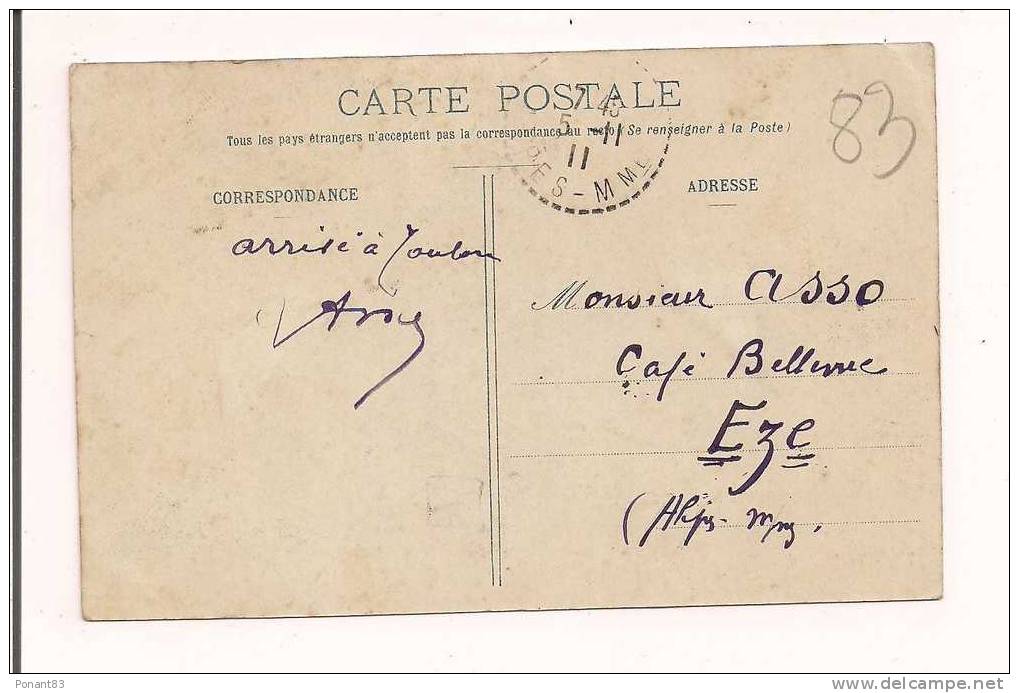 CARTE POSTALE
Tous les pays étrangers n'acceptent pas la correspondance au recto (Se renseigner à la Poste)
7 45
5 -11
11
PES - MME
83
CORRESPONDANCE
ADRESSE
arrivé à Toulon
Monsieur Asso
Café Bellevue
Eze
(Alpes- Mmes.
Ponant83
www.delcampe.net